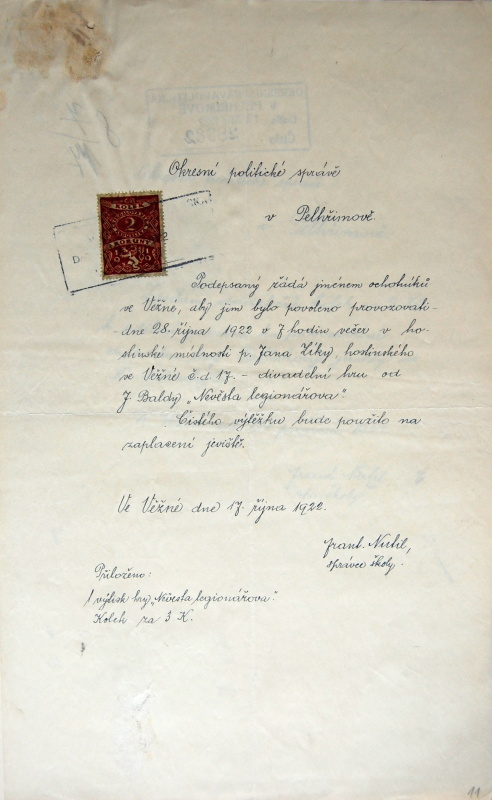 Okresní politické správě
v Pelhřimově.
KOLEK
2
KORUNY
Podepsaný žádá jménem ochotníků
ve Věžné, aby jim bylo povoleno provozovati-
dne 28. října 1922 v 7 hodin večer v ho-
stinské místnosti p. Jana Ziky, hostinského
ve Věžné č.d 17. - divadelní hru od
J. Baldy „Nevěsta legionářova“.
Čistého výtěžku bude použito na
zaplacení jeviště.
Ve Věžné dne 17. října 1922.
Frant. Nutil,
správce školy.
Přiloženo:
1 výtisk hry „Nevěsta legionářova“.
Kolek za 3 K.
11